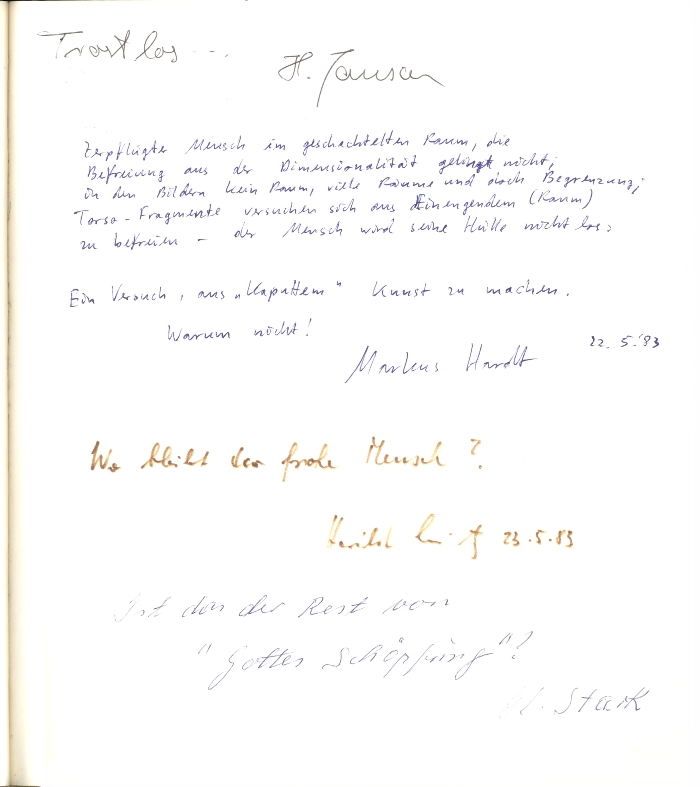 Trostlos ...
H. Jansen
Zerpflügter Mensch im geschachtelten Raum, die
Befreiung aus der Dimensionalität gelingt nicht;
in den Bildern kein Raum, viele Räume und doch Begrenzung;
Torso-Fragmente versuchen sich aus Einengendem (Raum)
zu befreien – der Mensch wird seine Hülle nicht los.
Ein Versuch, aus „Kaputtem“ Kunst zu machen.
Warum nicht!
Markus Hardt 22.5.'83
Wo bleibt der frohe Mensch?
23.5.83
Ist das der Rest von
"Gottes Schöpfung"?
Stark